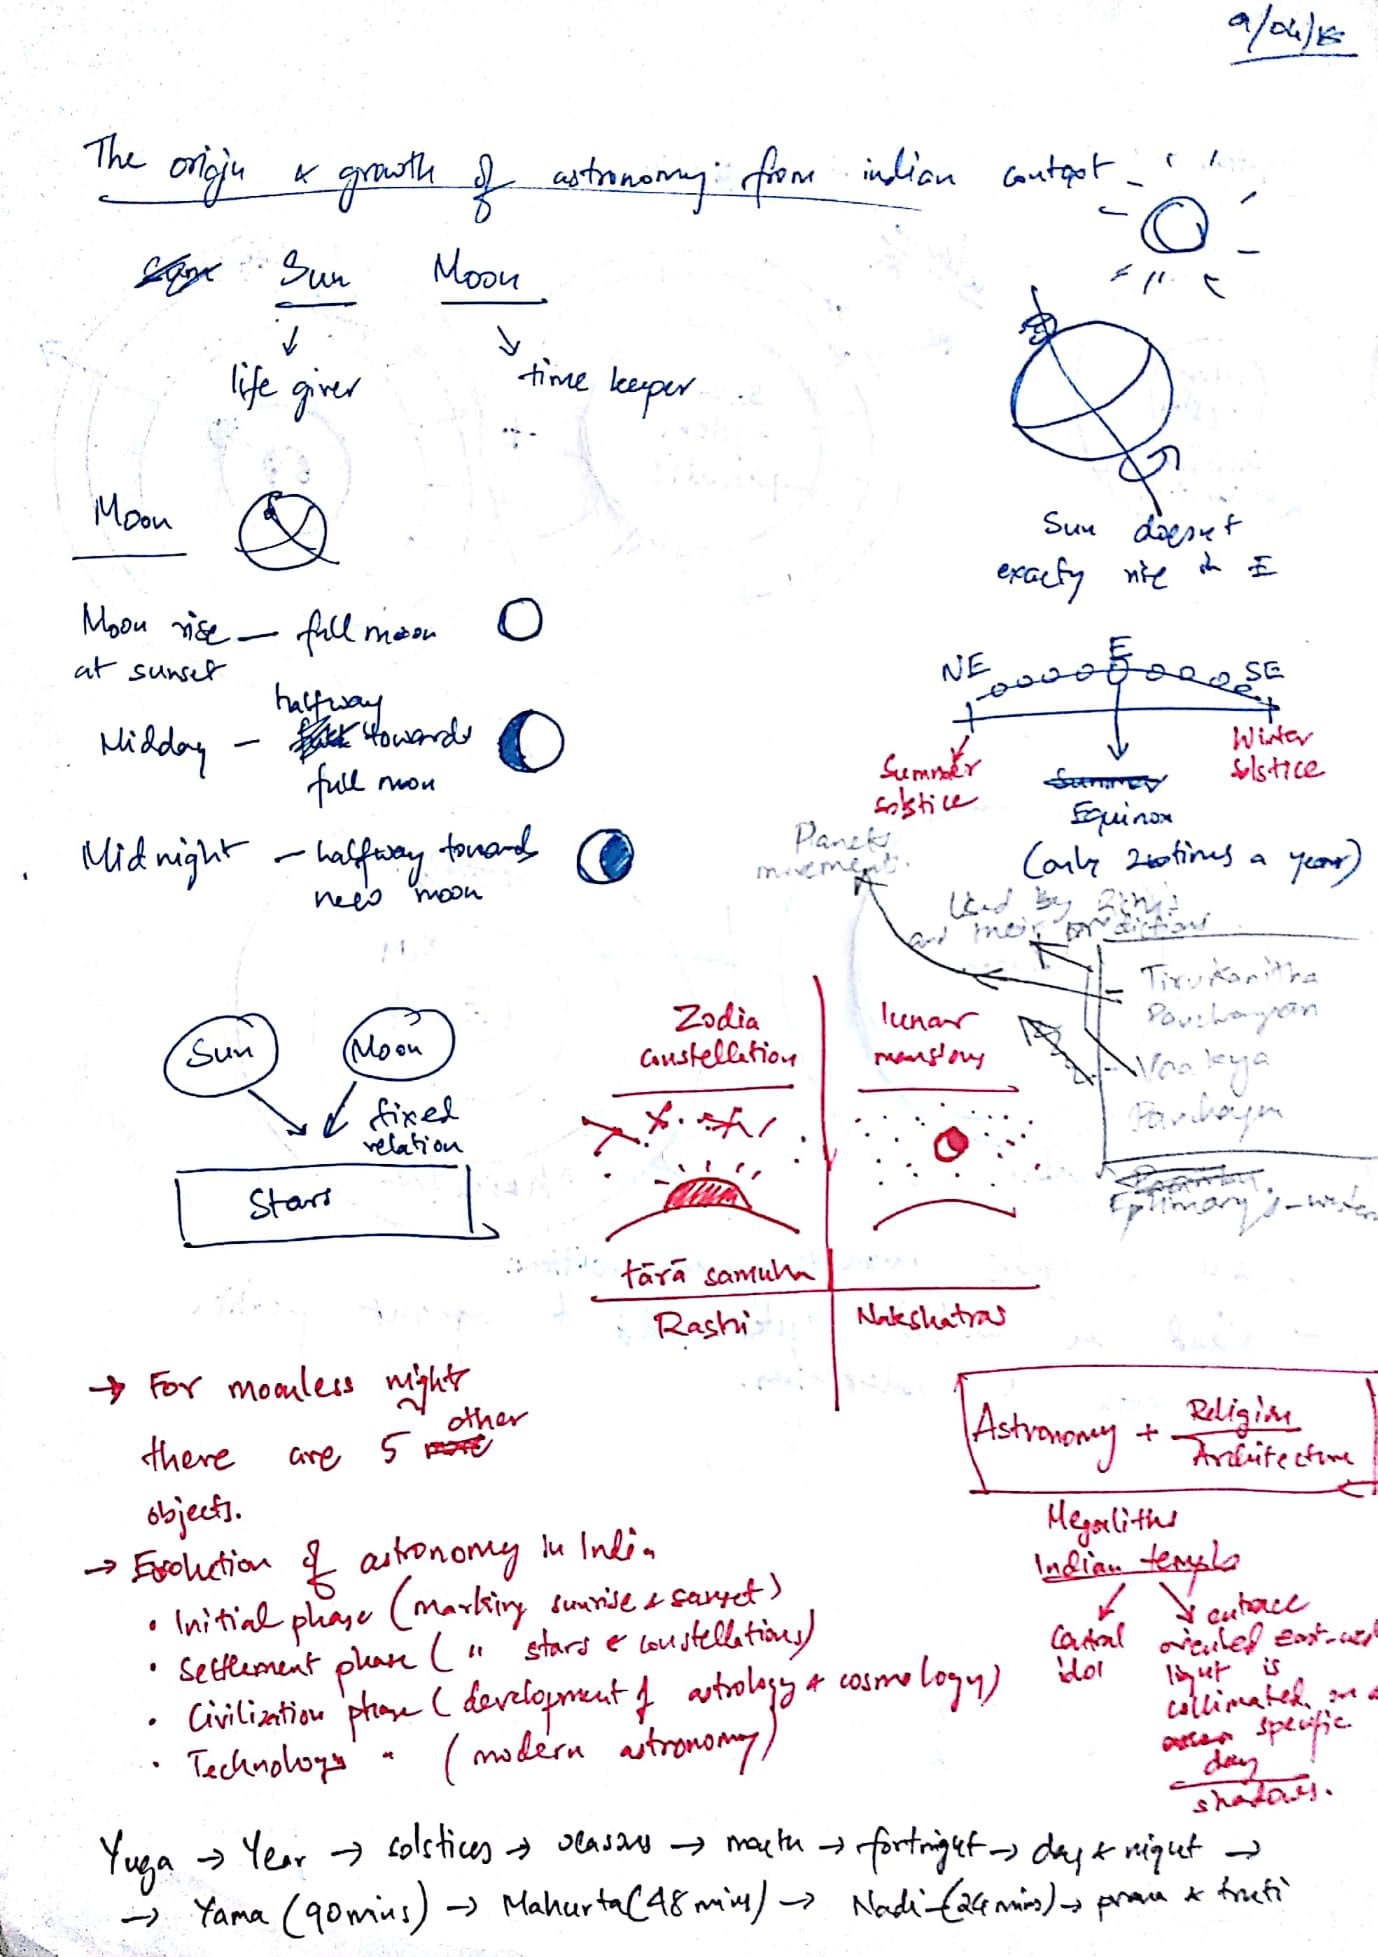 9/04/18
The origin & growth of astronomy: from indian context
Sun Moon
life giver
time keeper
Moon
Sun doesn't
exactly rise in E
Moon rise — full moon
at sunset
halfway
Midday — towards
full moon
Midnight — halfway towards
new moon
NE E SE
Summer
solstice
Winter
solstice
Equinox
(only 2 times a year)
Planets
movement.
Used by Rishis
and their predictions
Tirukanitha
Panchangam
Vaakya
Panchangam
Sun
Moon
fixed
relation
Stars
Zodia
constellation
lunar
mansions
tārā samuha
Rashi
Nakshatras
→ For moonless night
there are 5 other
objects.
Astronomy + Religion
Architecture
Megaliths
Indian temple
Central
idol
entrace
oriented east-west
light is
collimated on a
specific
day
shadows.
→ Evolution of astronomy in India
• Initial phase (marking sunrise & sunset)
• Settlement phase ( " stars & constellations)
• Civilization phase (development of astrology & cosmology)
• Technology " (modern astronomy)
Yuga → Year → solstices → seasons → month → fortnight → day & night →
→ Yama (90 mins) → Mahurta (48 mins) → Nadi - (24 mins) → prana & truti